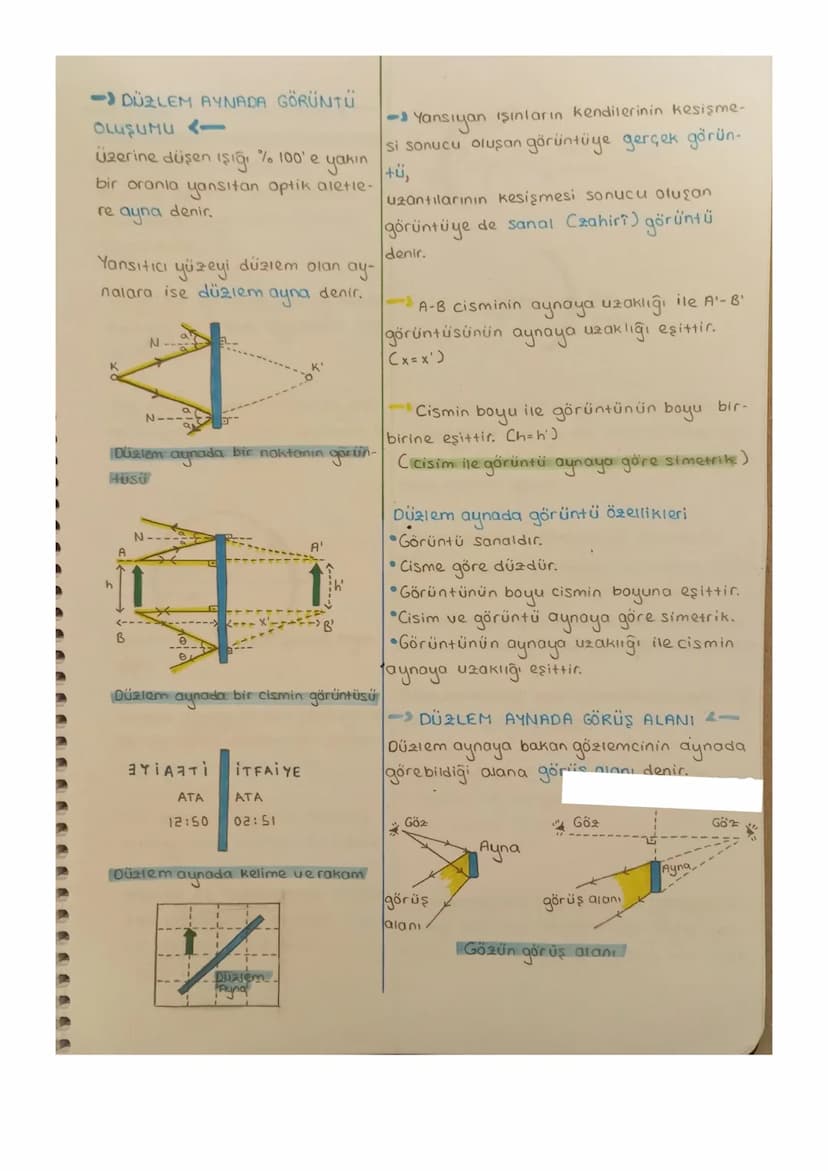 → DÜZLEM AYNADA GÖRÜNTÜ
OLUŞUMU ←
üzerine düşen ışığı % 100'e yakın
bir oranla yansıtan optik aletle-
re ayna denir.
Yansıtıcı yüzeyi düzlem olan ay-
nalara ise düzlem ayna denir.
N
a
a
K
K'
N
a
a
Düzlem aynada bir noktanın görün-
tüsü
N
A
A'
h
h'
x'
B
B'
θ
θ
Düzlem aynada bir cismin görüntüsü
İTFAİYE İTFAİYE
ATA ATA
12:50 02:51
Düzlem aynada kelime ve rakam
Düzlem
Ayna
→ Yansıyan ışınların kendilerinin kesişme-
si sonucu oluşan görüntüye gerçek görün-
tü,
uzantılarının kesişmesi sonucu oluşan
görüntüye de sanal (zahirî) görüntü
denir.
→ A-B cisminin aynaya uzaklığı ile A'-B'
görüntüsünün aynaya uzaklığı eşittir.
(x=x')
Cismin boyu ile görüntünün boyu bir-
birine eşittir. (h=h')
(cisim ile görüntü aynaya göre simetrik)
Düzlem aynada görüntü özellikleri
•Görüntü sanaldır.
•Cisme göre düzdür.
•Görüntünün boyu cismin boyuna eşittir.
•Cisim ve görüntü aynaya göre simetrik.
•Görüntünün aynaya uzaklığı ile cismin
aynaya uzaklığı eşittir.
→ DÜZLEM AYNADA GÖRÜŞ ALANI ←
Düzlem aynaya bakan gözlemcinin aynada
görebildiği alana görüş alanı denir.
Göz
Ayna
görüş
alanı
Göz
Göz
Ayna
görüş alanı
Gözün görüş alanı